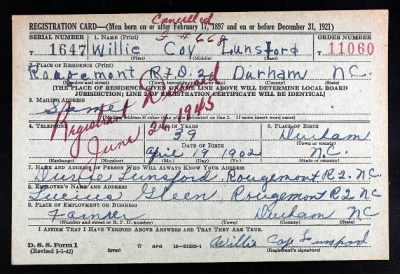 Cancelled
REGISTRATION CARD—(Men born on or after February 17, 1897 and on or before December 31, 1921)
SERIAL NUMBER 1. NAME (Print) ORDER NUMBER
T 1647 Willie Coy Lunsford T 11060
(First) (Middle) (Last)
2. PLACE OF RESIDENCE (Print)
Rougemont R.F.D. 2 Durham N.C.
[THE PLACE OF RESIDENCE GIVEN ON THE LINE ABOVE WILL DETERMINE LOCAL BOARD
JURISDICTION; LINE 2 OF REGISTRATION CERTIFICATE WILL BE IDENTICAL]
3. MAILING ADDRESS
Same
Registrant Deceased
June 26, 1945
4. TELEPHONE 5. AGE IN YEARS 6. PLACE OF BIRTH
39 Durham
DATE OF BIRTH
April 19 1902 N.C.
(Exchange) (Number) (Mo.) (Day) (Yr.) (State or country)
7. NAME AND ADDRESS OF PERSON WHO WILL ALWAYS KNOW YOUR ADDRESS
Lunsford, Rougemont R2. N.C.
8. EMPLOYER'S NAME AND ADDRESS
Lucius Glenn, Rougemont R2 N.C
9. PLACE OF EMPLOYMENT OR BUSINESS
Farmer Durham NC
I AFFIRM THAT I HAVE VERIFIED ABOVE ANSWERS AND THAT THEY ARE TRUE.
D. S. S. Form 1
(Revised 1-1-42) (over) ☆ GPO 16—21630-1
Willie Coy Lunsford
(Registrant's signature)